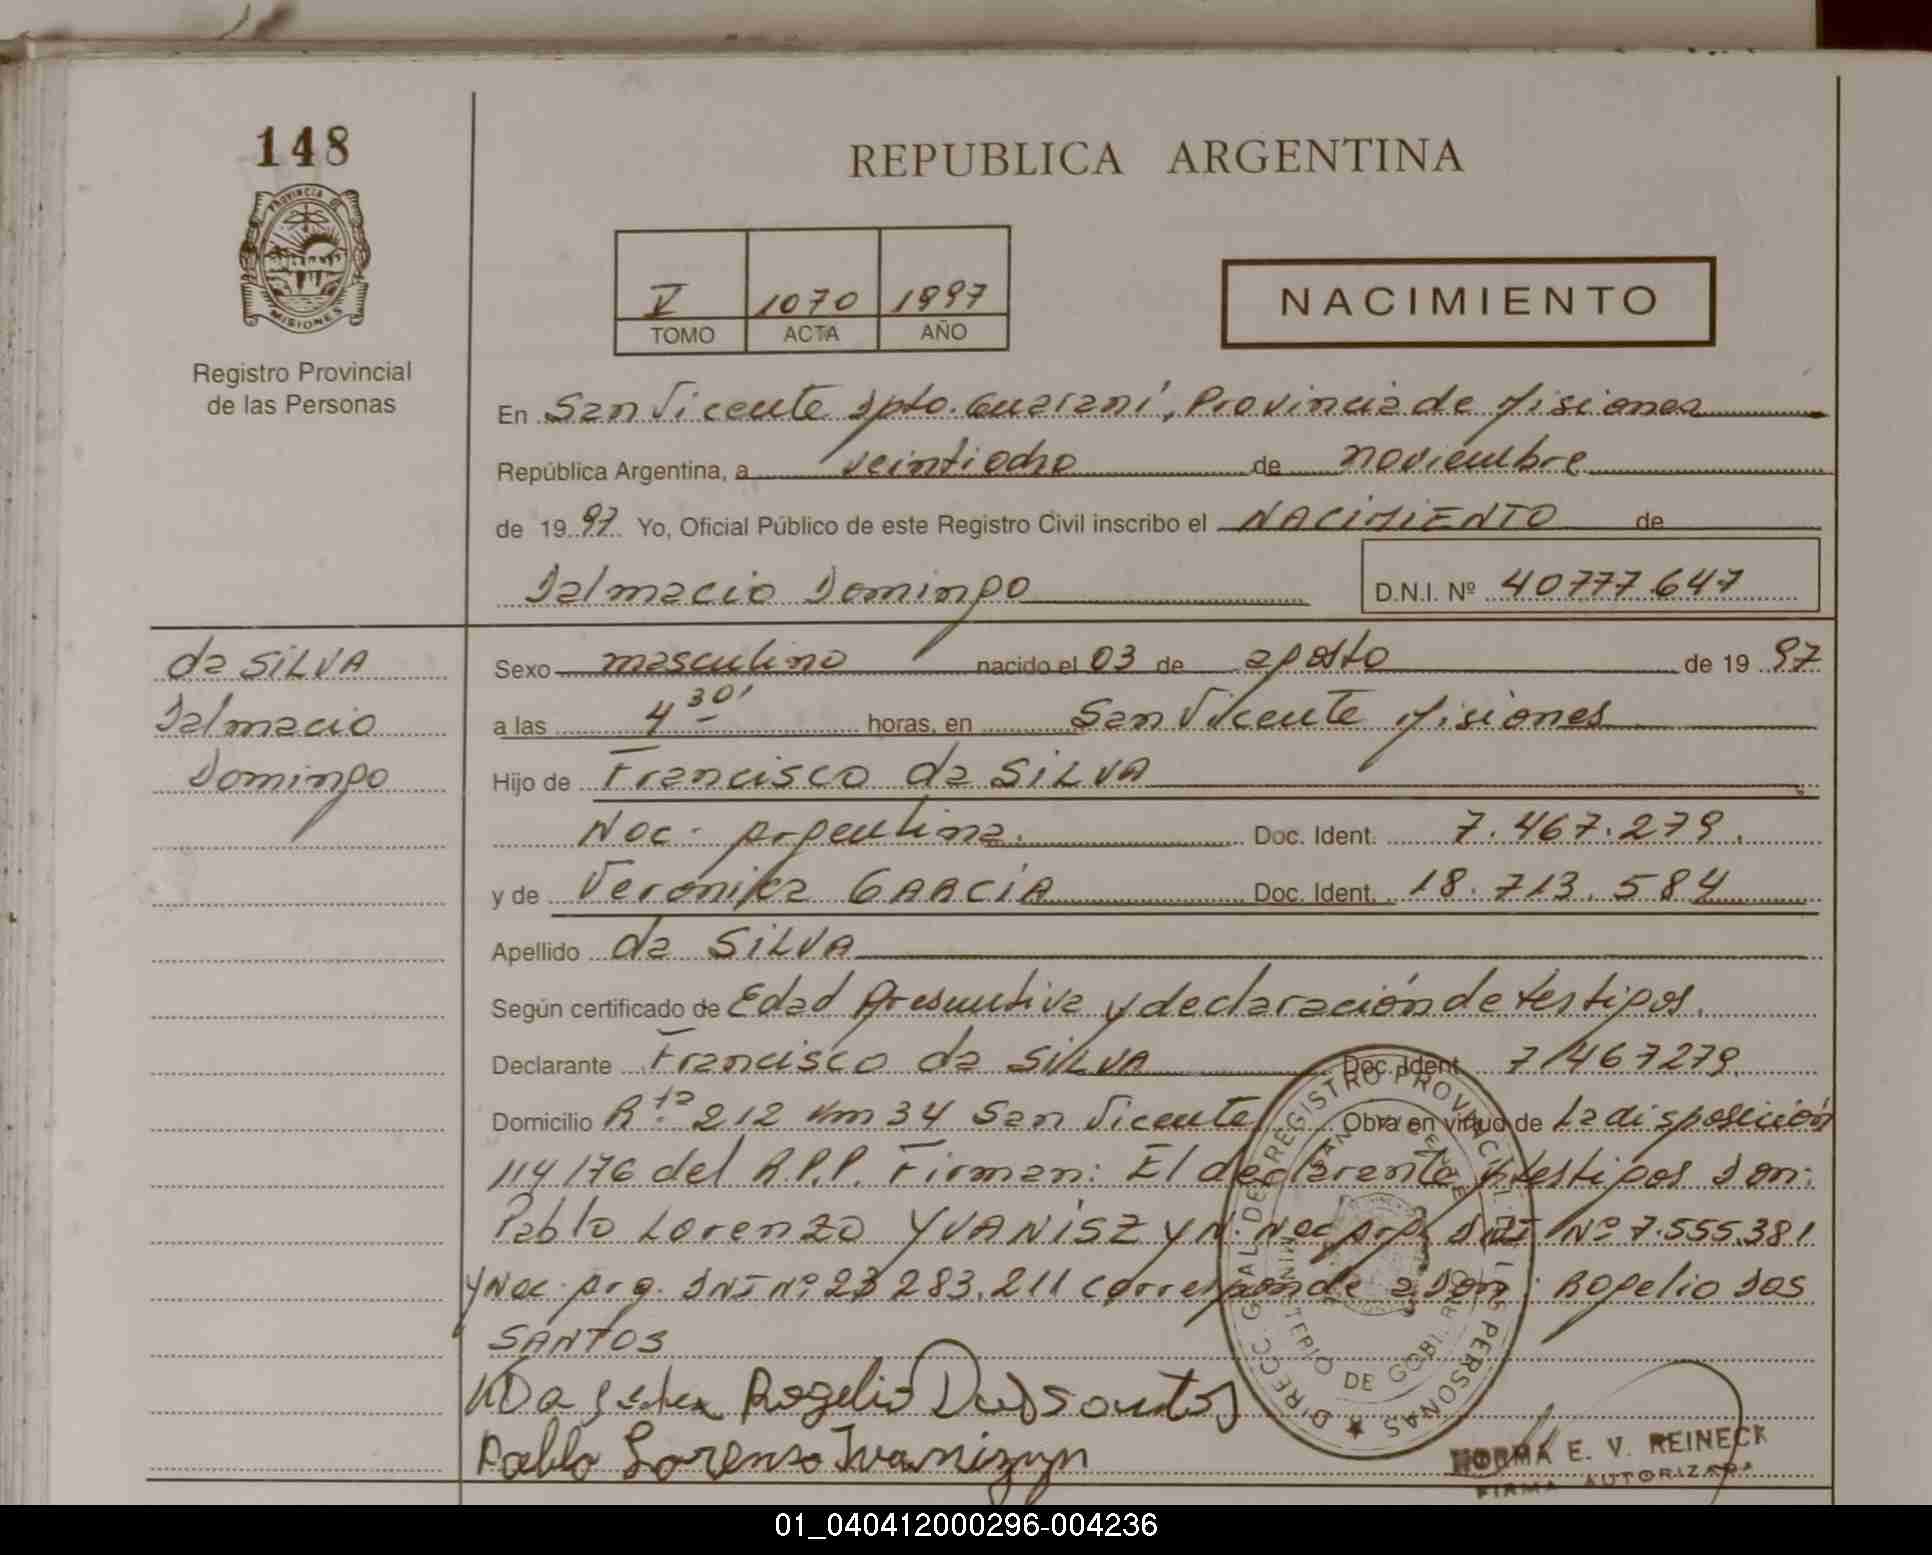 148
REPUBLICA ARGENTINA
PROVINCIA DE
MISIONES
Registro Provincial
de las Personas
V 1070 1997
TOMO ACTA AÑO
NACIMIENTO
En San Vicente Dpto. Guaraní, Provincia de Misiones
República Argentina, a veintiocho de noviembre
de 1997 Yo, Oficial Público de este Registro Civil inscribo el NACIMIENTO de
Dalmacio Domingo D.N.I. Nº 40777.647
da SILVA
Dalmacio
Domingo
Sexo masculino nacido el 03 de agosto de 1997
a las 4 30' horas, en San Vicente Misiones
Hijo de Francisco da SILVA
Nac. argentina. Doc. Ident. 7.467.279.
y de Veronika GARCÍA Doc. Ident. 18.713.584
Apellido da SILVA
Según certificado de Edad Presuntiva y declaración de testigos.
Declarante Francisco da SILVA Doc. Ident. 7467279.
Domicilio Rta 212 Km 34 San Vicente Obra en virtud de La disposición
114/76 del R.P.P. Firman: El declarante y testigos Don:
Pablo Lorenzo YVANISZYN. Nac arg. DNI Nº 7.555.381
y Nac. arg. DNI Nº 23 283.211 corresponde a Don: Rogelio Dos
SANTOS
Rogelio Dos Santos
Pablo Lorenzo Ivaniszyn
DIRECC. GRAL DEL REGISTRO PROVINCIAL DE LAS PERSONAS
SAN VICENTE
MINISTERIO DE GOBIERNO
NORMA E. V. REINECK
FIRMA AUTORIZADA
01_040412000296-004236